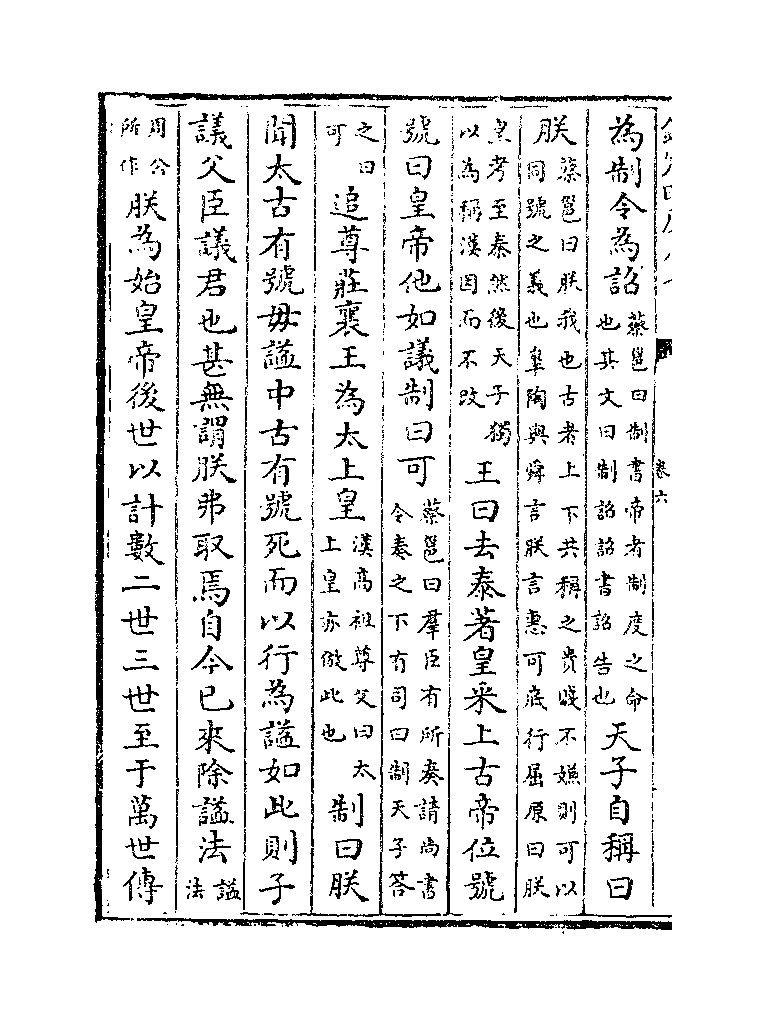 卷六
為制令為詔蔡邕曰制書帝者制度之命也其文曰制詔詔書詔告也天子自稱曰
朕蔡邕曰朕我也古者上下共稱之貴賤不嫌則可以同號之義也臯陶與舜言朕言惠可底行屈原曰朕
皇考至秦然後天子獨以為稱漢因而不改王曰去泰著皇采上古帝位號
號曰皇帝他如議制曰可蔡邕曰羣臣有所奏請尚書令奏之下有司曰制天子答
之曰可追尊莊襄王為太上皇漢高祖尊父曰太上皇亦倣此也制曰朕
聞太古有號毋謚中古有號死而以行為謚如此則子
議父臣議君也甚無謂朕弗取焉自今已來除謚法謚法
周公所作朕為始皇帝後世以計數二世三世至于萬世傳